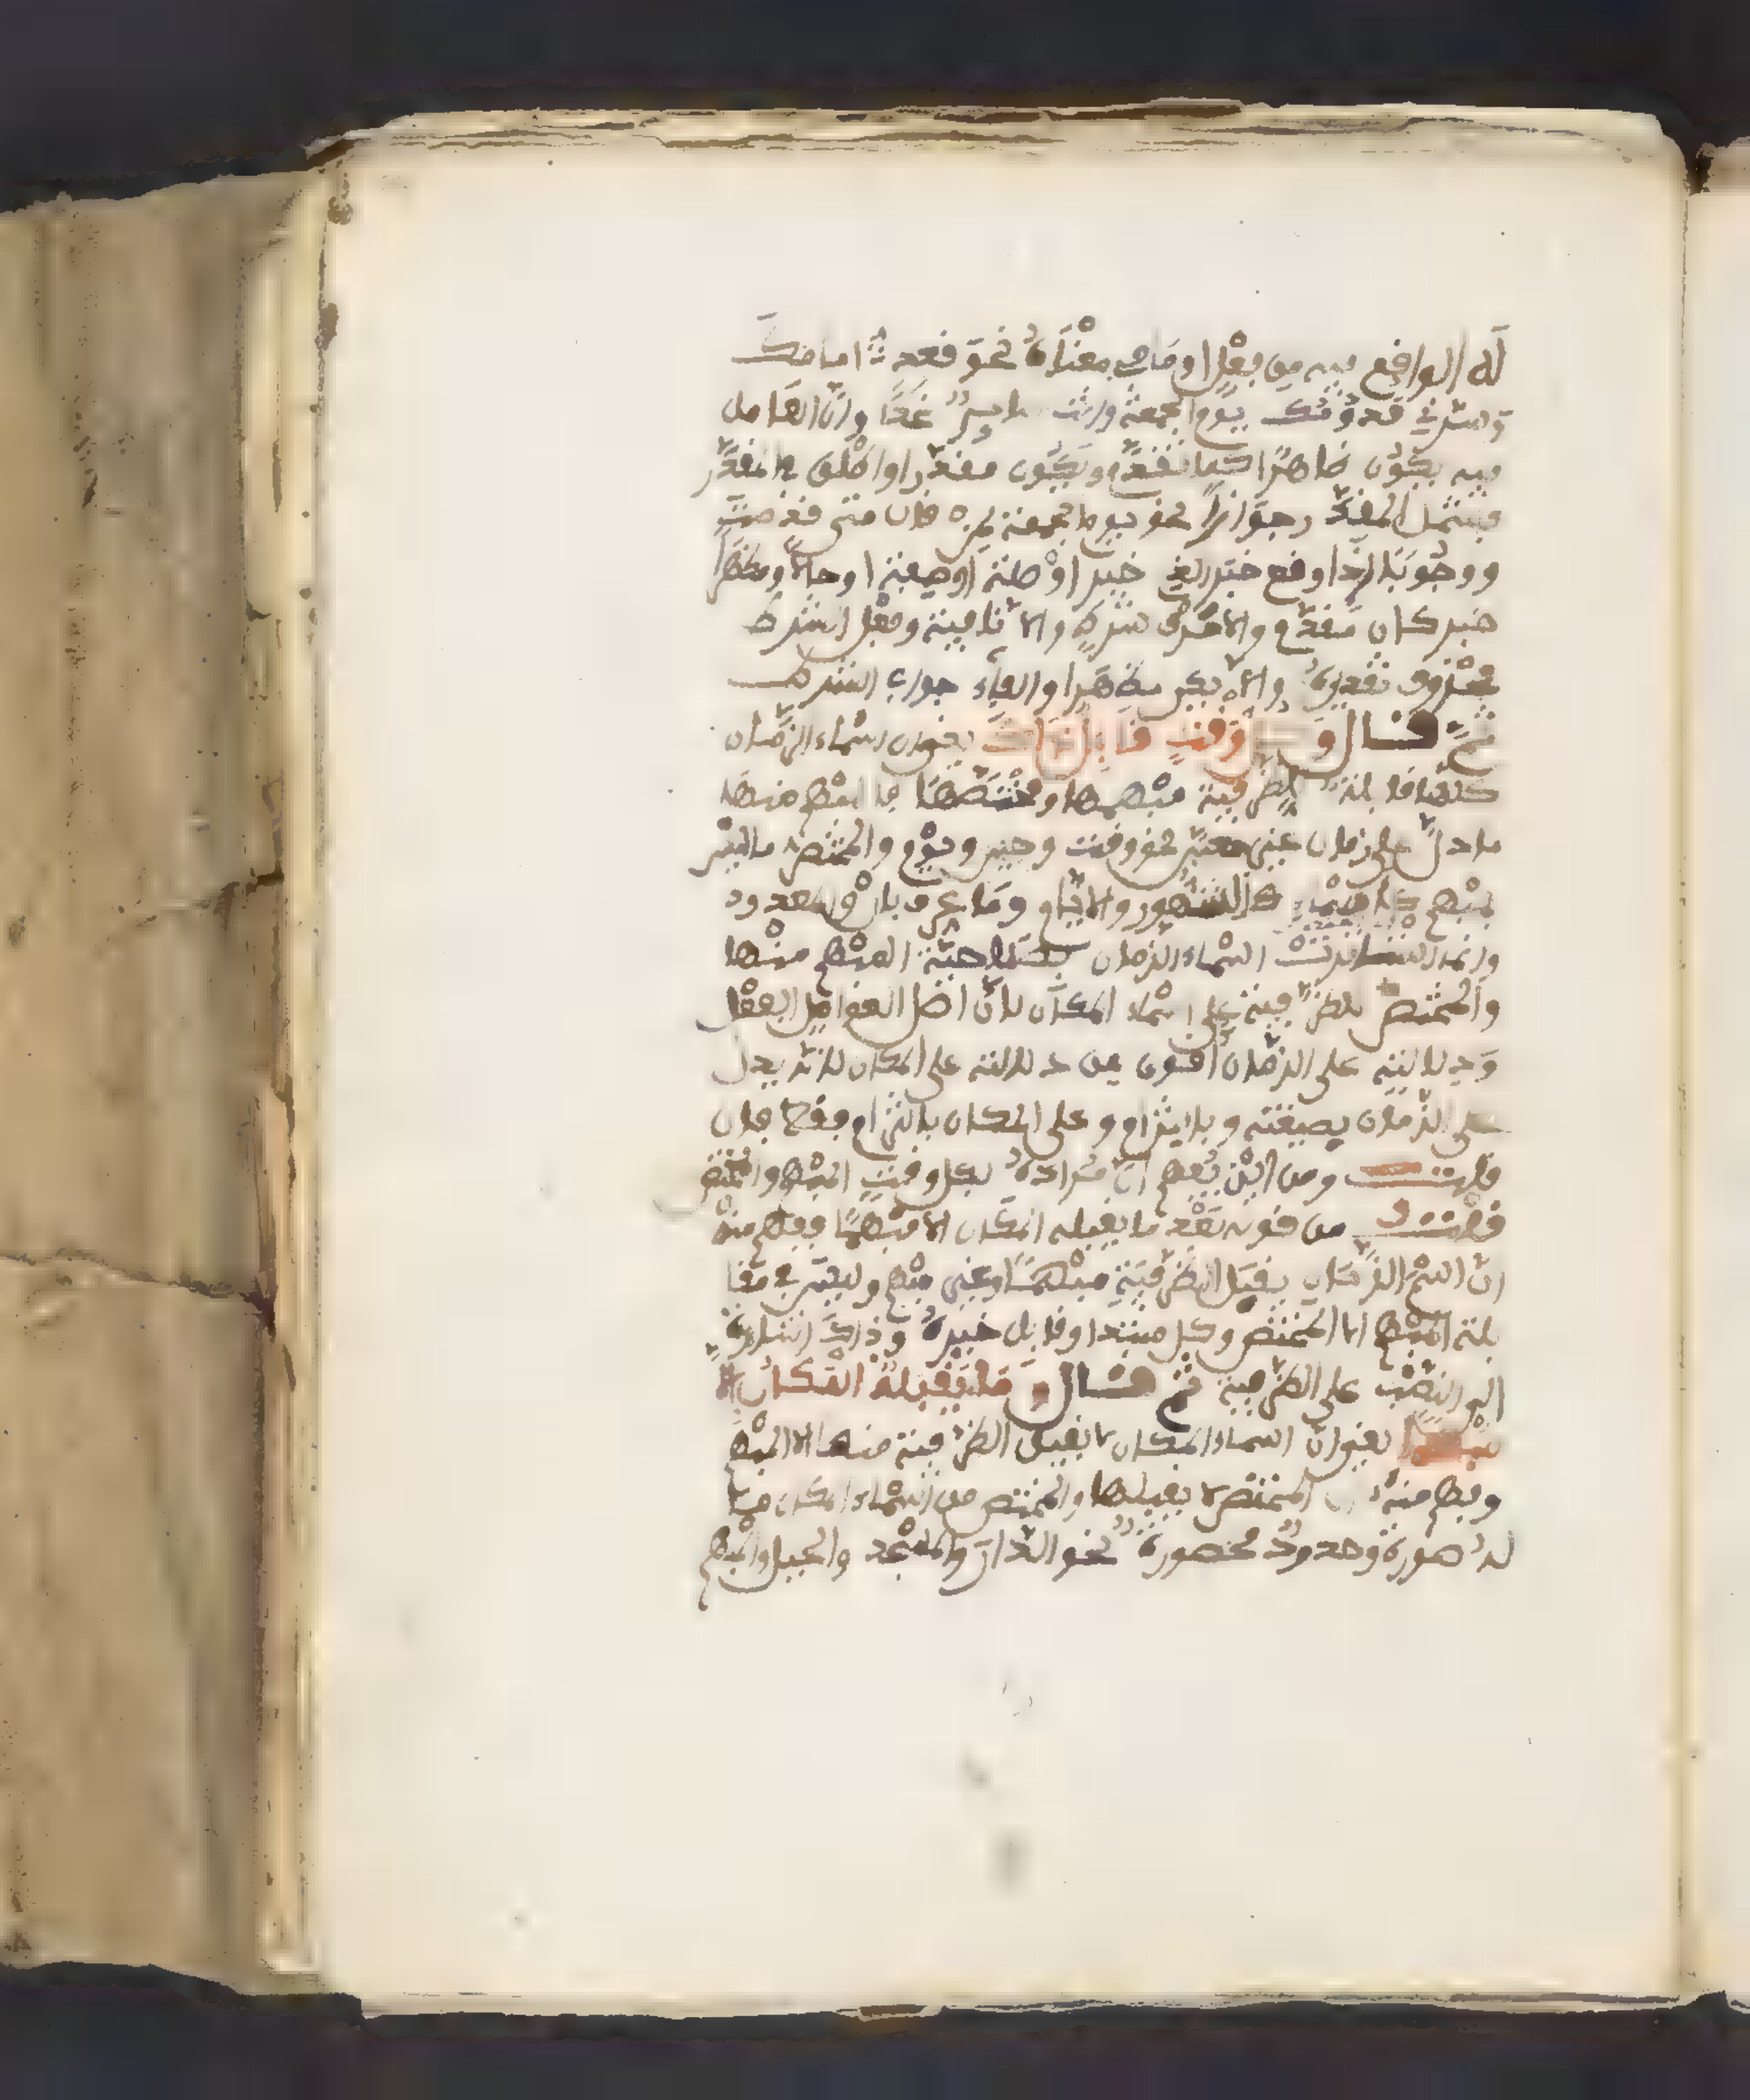 له الواقع فيه من فعل او ما في معناه نحو قعدت امامك
وسرني قدومك يوم الجمعة وانت سايرٌ غدًا وانّ العامل
فيه يكون ظاهرًا كما تقدّم ويكون مقدّرا واطلق في المقدّر
فيشمل المقدّر جوازاً نحو يوم الجمعة لمن قال متى قدمت
ووجوبًا اذا وقع خبرا لذي خبر او صلة او صفة او حالا ومظهرا
خبر كان مقدّم والا حرف شرط ولا نافية وفعل الشرط
محذوف تقديره والا يكن مظهرا والفاء جواب الشرط
ثمّ قال وكل وقتٍ قابل ذاك يعني ان اسماء الزمان
كلها قابلة للظرفية مبهمها ومختصها فالمبهم منها
ما دلّ على زمان غير معيّن نحو وقت وحين ويوم والمختص ما ليس
بمبهم كاسماء الشهور والايّام وما عرف بال والمعدود
وانما استاثرت اسماء الزمان بصلاحيّة المبهم منها
والمختص للظرفية على اسماء المكان لانّ اصل العوامل الفعل
ودلالته على الزمان اقوى من دلالته على المكان لانه يدل
على الزمان بصيغته وبالتزام وعلى المكان بالتزام فقط فان
قلت ومن اين يُفهم انّ مراده بكل وقت المبهم والمختص
قلت من قوله بعد ما يقبله المكان الا مبهما ففهم منه
انّ اسم الزمان يقبل الظرفية مبهمًا وغير مبهم وليس في مقا
بلة المبهم الا المختص وكل مبتدا وقابل خبره وذاك اشارة
الى النصب على الظرفية ثم قال وما يقبله المكان الا
مبهما يعني انّ اسماء المكان لا يقبل الظرفية منها الا المبهم
وفهم منه ان المختص لا يقبلها والمختص من اسماء المكان ما
له صورة وحدود محصورة نحو الدار والمسجد والجبل والمبهم